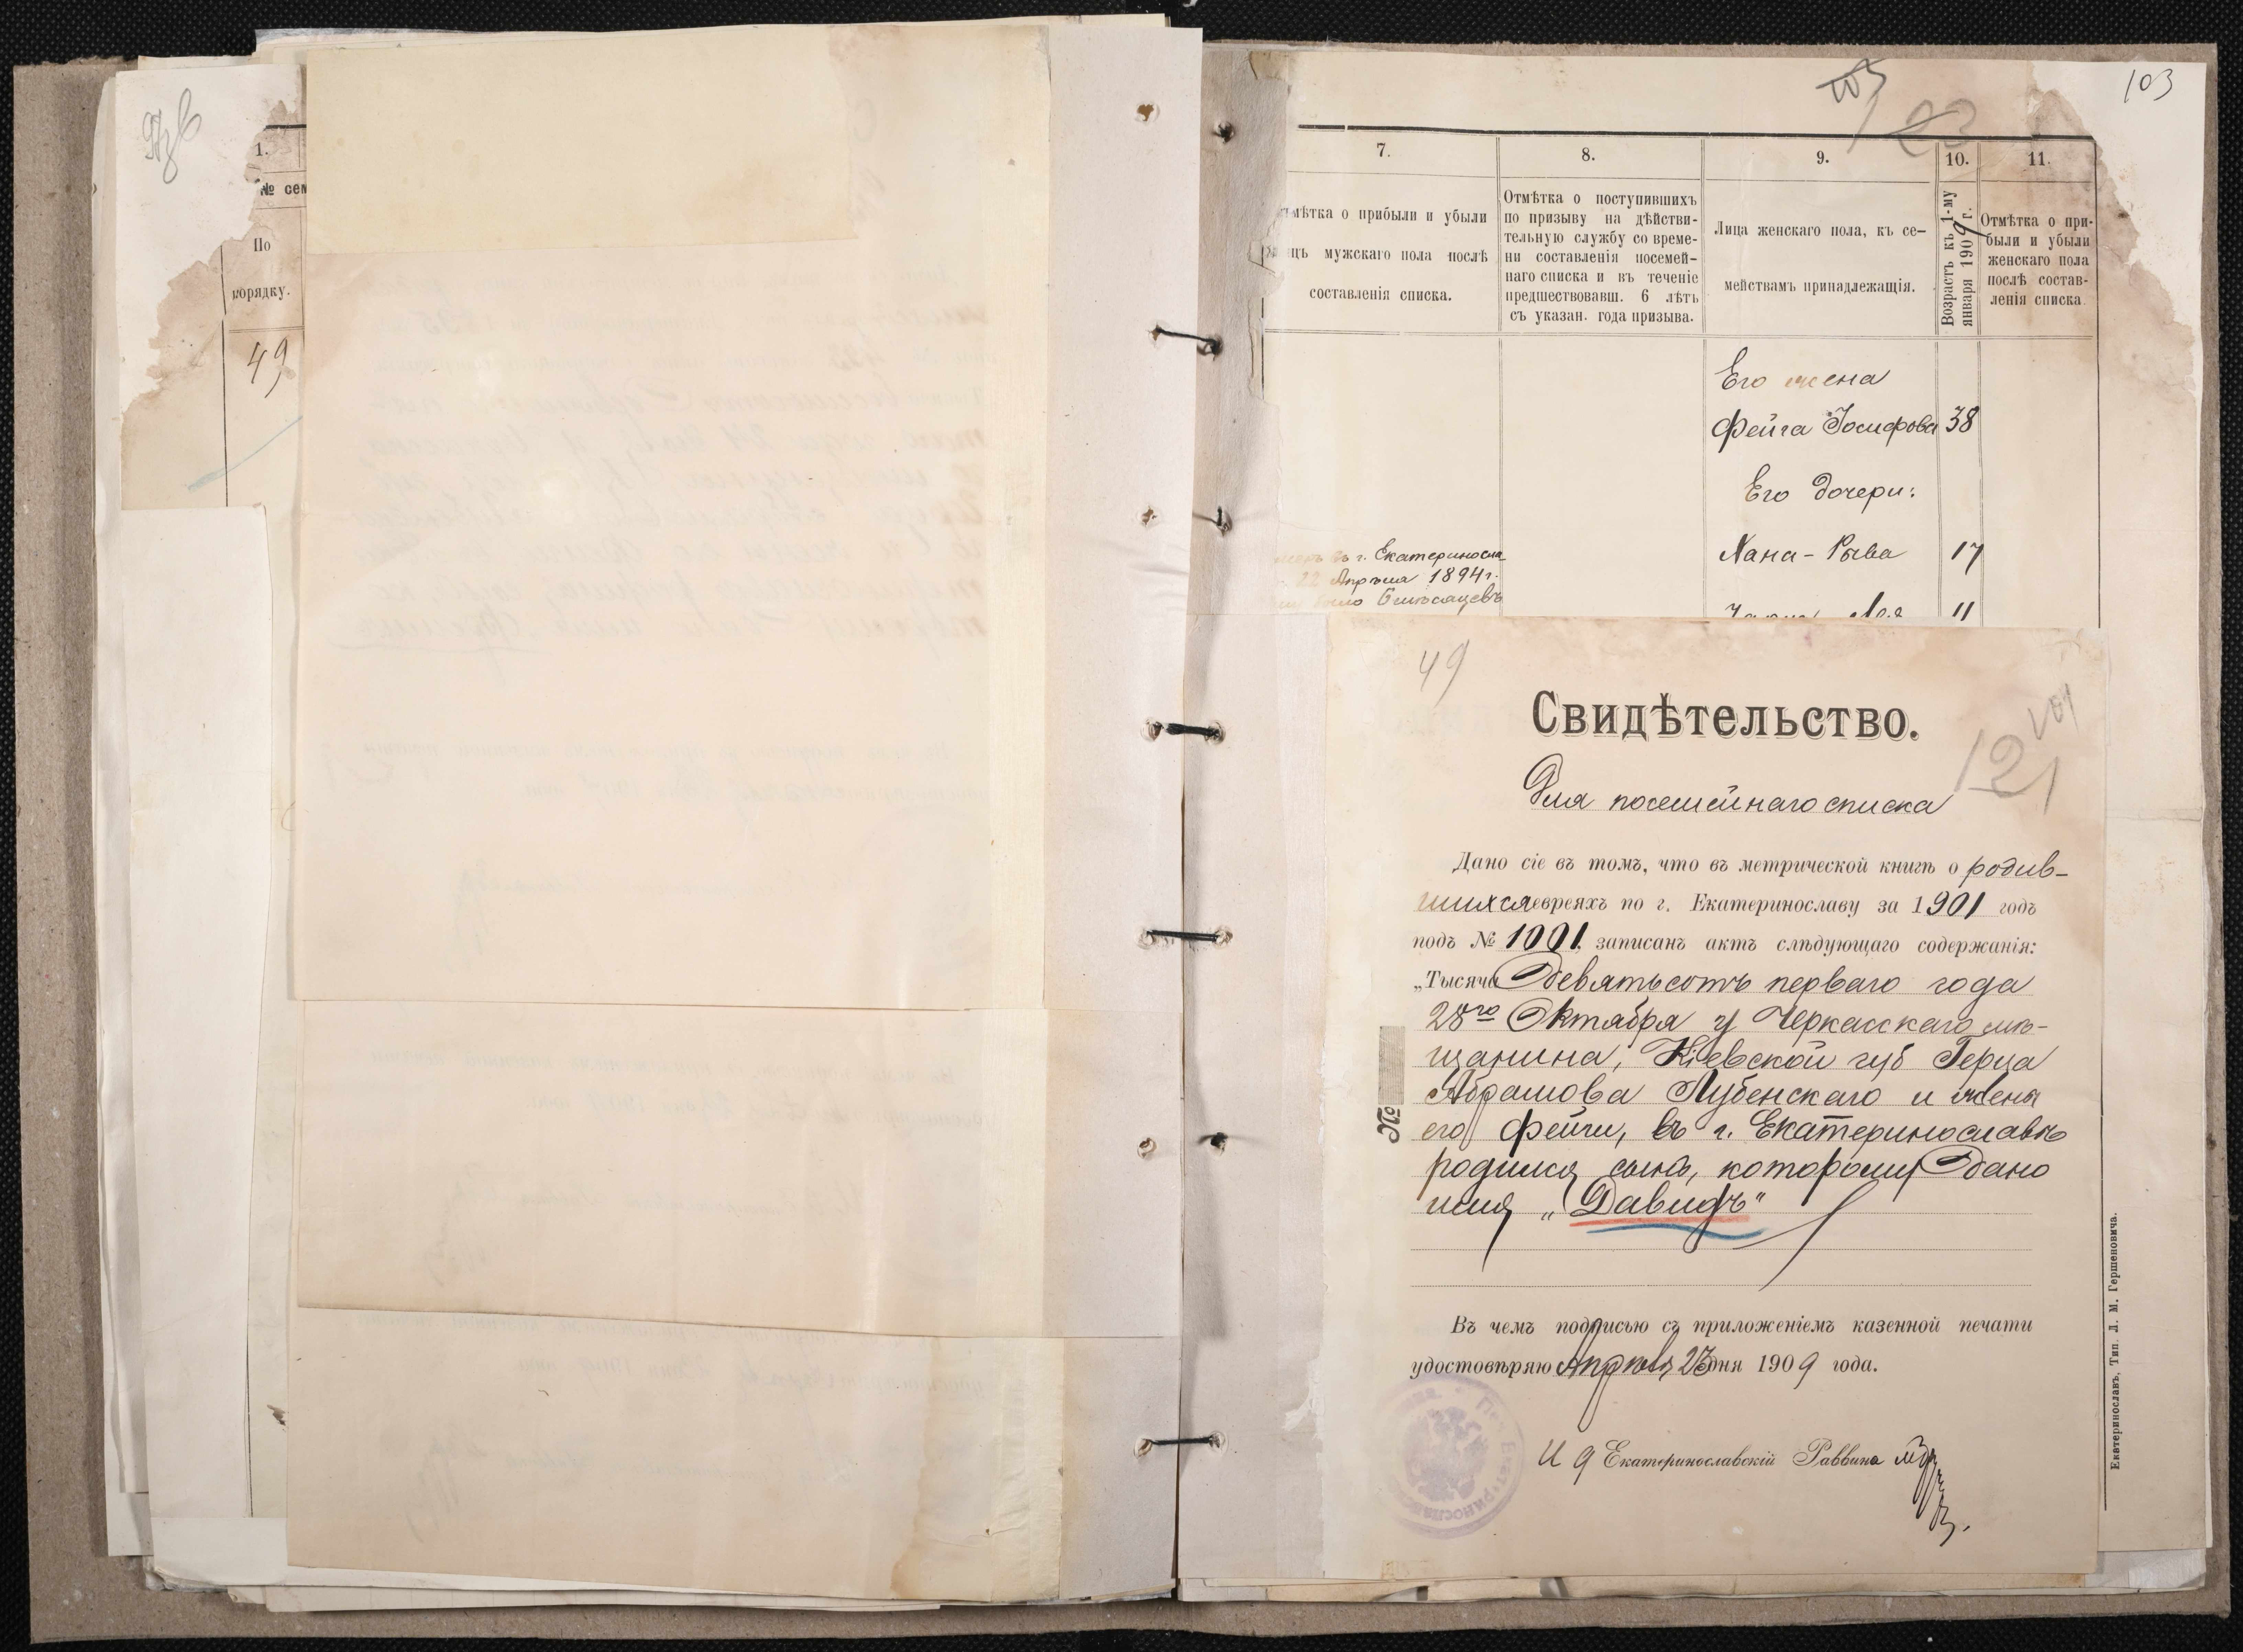 1.
№ сем
По
порядку.
49
103
103
23
7.
8.
9.
10.
11.
мѣтка о прибыли и убыли
мужскаго пола послѣ
составленія списка.
Отмѣтка о поступившихъ
по призыву на дѣйстви-
тельную службу со време-
ни составленія посемей-
наго списка и въ теченіе
предшествовавш. 6 лѣтъ
съ указан. года призыва.
Лица женскаго пола, къ се-
мействамъ принадлежащія.
Возрастъ къ 1-му
января 1909 г.
Отмѣтка о при-
были и убыли
женскаго пола
послѣ состав-
ленія списка.
Его жена
Фейга Іосифова 38
Его дочери:
Хана-Рыва 17
въ г. Екатериносла
22 Апрѣля 1894 г.
было 6 мѣсяцевъ
Лея 11
49
Свидѣтельство.
101
121
Для посемейнаго списка
Дано сіе въ томъ, что въ метрической книгѣ о родив-
шихся евреяхъ по г. Екатеринославу за 1901 годъ
подъ № 1001 записанъ актъ слѣдующаго содержанія:
„Тысяча Девятьсотъ перваго года
28го Октября у Черкасскаго мѣ-
щанина, Кіевской губ Герца
Абрамова Лубенскаго и жены
его Фейги, въ г. Екатеринославѣ
родился сынъ, которому дано
имя „Давидъ“
№
Въ чемъ подписью съ приложеніемъ казенной печати
удостовѣряю Апрѣля 23 дня 1909 года.
И д Екатеринославскій Раввина
Екатеринославъ, Тип. Л. М. Гершеновича.